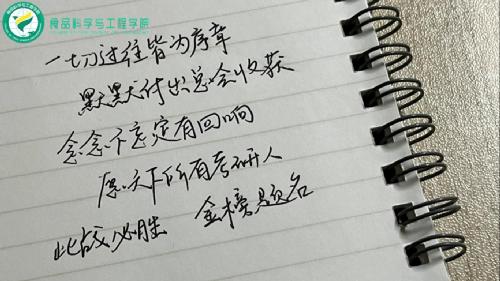 食品科学与工程学院
一切过往皆为序章
默默付出总会收获
念念不忘定有回响
愿天下所有考研人
此战必胜 金榜题名